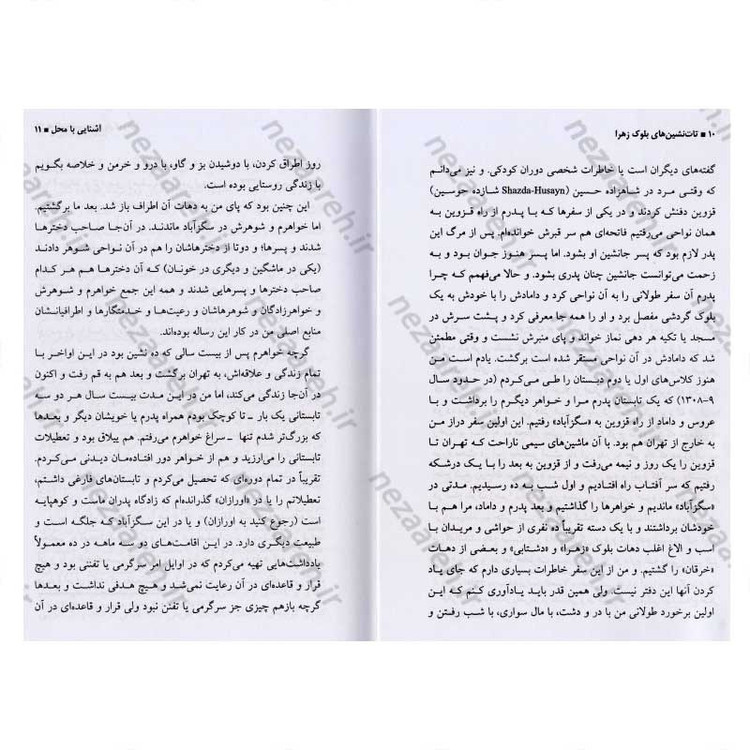 ۱۰ ■ تات‌نشین‌های بلوک زهرا
گفته‌های دیگران است یا خاطرات شخصی دوران کودکی. و نیز می‌دانم
که وقتی مرد در شاهزاده حسین (Shazda-Husayn شازده حوسین)
قزوین دفنش کردند و در یکی از سفرها که با پدرم از راه قزوین به
همان نواحی می‌رفتیم فاتحه‌ای هم سر قبرش خوانده‌ام. پس از مرگ این
پدر لازم بود که پسر جانشین او بشود. اما پسر هنوز جوان بود و به
زحمت می‌توانست جانشین چنان پدری بشود. و حالا می‌فهمم که چرا
پدرم آن سفر طولانی را به آن نواحی کرد و دامادش را با خودش به یک
بلوک گردشی مفصل برد و او را همه جا معرفی کرد و پشت سرش در
مسجد یا تکیه هر دهی نماز خواند و پای منبرش نشست و وقتی مطمئن
شد که دامادش در آن نواحی مستقر شده است برگشت. یادم است من
هنوز کلاس‌های اول یا دوم دبستان را طی می‌کردم (در حدود سال
۹-۱۳۰۸) که یک تابستان پدرم مرا و خواهر دیگرم را برداشت و با
عروس و داماد از راه قزوین به «سگزآباد» رفتیم. این اولین سفر دراز من
به خارج از تهران هم بود. با آن ماشین‌های سیمی ناراحت که تهران تا
قزوین را یک روز و نیمه می‌رفت و از قزوین به بعد را با یک درشکه
رفتیم که سر آفتاب راه افتادیم و اول شب به ده رسیدیم. مدتی در
«سگزآباد» ماندیم و خواهرها را گذاشتیم و بعد پدرم و داماد، مرا هم با
خودشان برداشتند و با یک دسته تقریباً ده نفری از حواشی و مریدان با
اسب و الاغ اغلب دهات بلوک «زهرا» و «دشتابی» و بعضی از دهات
«خرقان» را گشتیم. و من از این سفر خاطرات بسیاری دارم که جای یاد
کردن آنها این دفتر نیست. ولی همین قدر باید یادآوری کنم که این
اولین برخورد طولانی من با در و دشت، با مال سواری، با شب رفتن و
آشنایی با محل ■ ۱۱
روز اطراق کردن، با دوشیدن بز و گاو، با درو و خرمن و خلاصه بگویم
با زندگی روستایی بوده است.
این چنین بود که پای من به دهات آن اطراف باز شد. بعد ما برگشتیم.
اما خواهرم و شوهرش در سگزآباد ماندند. در آن‌جا صاحب دخترها
شدند و پسرها؛ و دوتا از دخترهاشان را هم در آن نواحی شوهر دادند
(یکی در ماشگین و دیگری در خونان) که آن دخترها هم هر کدام
صاحب دخترها و پسرهایی شدند و همه این جمع خواهرم و شوهرش
و خواهرزادگان و شوهرهاشان و رعیت‌ها و خدمتگارها و اطرافیانشان
منابع اصلی من در کار این رساله بوده‌اند.
گرچه خواهرم پس از بیست سالی که ده نشین بود در این اواخر با
تمام زندگی و علاقه‌اش، به تهران برگشت و بعد هم به قم رفت و اکنون
در آن‌جا زندگی می‌کند، اما من در این مدت بیست سال هر دو سه
تابستانی یک بار ـ تا کوچک بودم همراه پدرم یا خویشان دیگر و بعدها
که بزرگ‌تر شدم تنها ـ سراغ خواهرم می‌رفتم. هم ییلاق بود و تعطیلات
تابستانی را می‌ارزید و هم از خواهر دور افتاده‌مان دیدنی می‌کردم.
تقریباً در تمام دوره‌ای که تحصیل می‌کردم و تابستان‌های فارغی داشتم،
تعطیلاتم را یا در «اورازان» گذرانده‌ام که زادگاه پدران ماست و کوهپایه
است (رجوع کنید به اورازان) و یا در این سگزآباد که جلگه است و
طبیعت دیگری دارد. در این اقامت‌های دو سه ماهه در ده معمولاً
یادداشت‌هایی تهیه می‌کردم که در اوایل امر سرگرمی یا تفننی بود و هیچ
قرار و قاعده‌ای در آن رعایت نمی‌شد و هیچ هدفی نداشت و بعدها
گرچه بازهم چیزی جز سرگرمی یا تفنن نبود ولی قرار و قاعده‌ای در آن
nezaareh.ir
nezaareh.ir
nezaareh.ir
nezaareh.ir
nezaareh.ir
nezaareh.ir